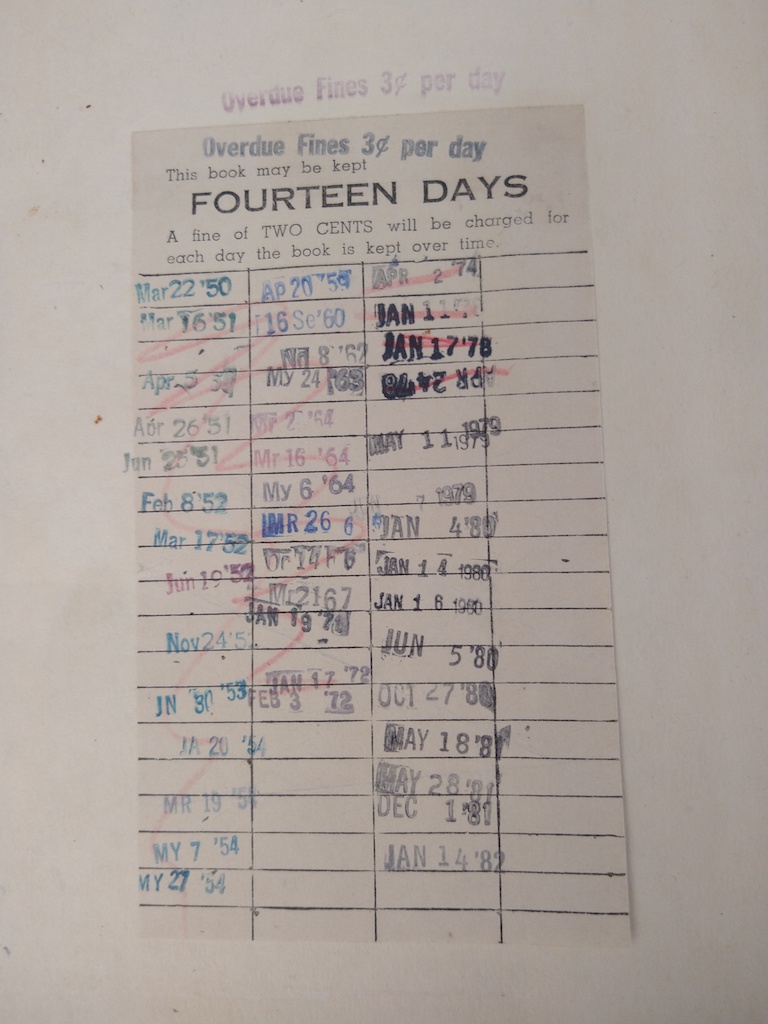 Overdue Fines 3¢ per day
Overdue Fines 3¢ per day
This book may be kept
FOURTEEN DAYS
A fine of TWO CENTS will be charged for
each day the book is kept over time.
Mar 22 '50
Mar 16 '51
Apr 5
Apr 26 '51
Jun 25 '51
Feb 8 '52
Mar 17 '52
Jun 19 '52
Nov 24 '5
JN 30 '53
JA 20 '54
MR 19 '54
MY 7 '54
MY 27 '54
AP 20 '59
16 Se '60
8 '62
MY 24 '63
Mr 2 '64
Mr 16 '64
My 6 '64
MR 26 6
Mr 21 67
JAN 19
JAN 17 '72
FEB 3 '72
APR 2 '74
JAN 11
JAN 17 '78
APR 24 '78
MAY 11 1979
7 1979
JAN 4 '80
JAN 14 1980
JAN 16 1980
JUN 5 '80
OCT 27 '80
MAY 18 '81
MAY 28 '81
DEC 1 '81
JAN 14 '82